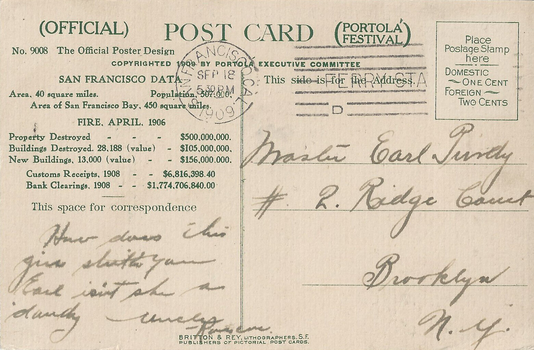 (OFFICIAL) POST CARD (PORTOLA' FESTIVAL)
No. 9008 The Official Poster Design
COPYRIGHTED 1909 BY PORTOLA EXECUTIVE COMMITTEE
SAN FRANCISCO DATA
Area, 40 square miles. Population, 507,000.
Area of San Francisco Bay, 450 square miles.
FIRE, APRIL, 1906
Property Destroyed - - $500,000,000.
Buildings Destroyed, 28,188 (value) - $105,000,000.
New Buildings, 13,000 (value) - $156,000,000.
Customs Receipts, 1908 - - $6,816,398.40
Bank Clearings, 1908 - $1,774,706,840.00
This space for correspondence
How does this
give
Earl isn't she a
dandy Uncle
SAN FRANCISCO, CAL.
SEP 18
5 30 PM
1909
FERRY STA.
D
This side is for the Address.
Place
Postage Stamp
here
DOMESTIC
ONE CENT
FOREIGN
TWO CENTS
Master Earl Purdy
# 2. Ridge Court
Brooklyn
N. Y.
BRITTON & REY, LITHOGRAPHERS, S.F.
PUBLISHERS OF PICTORIAL POST CARDS.